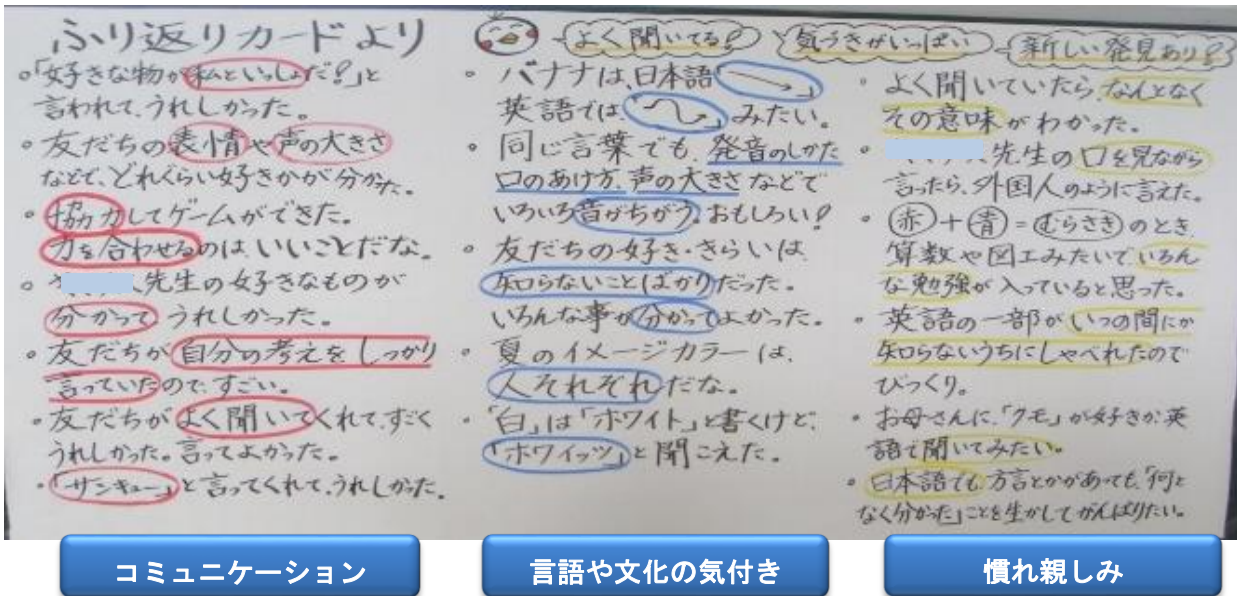 ふり返りカードより
よく聞いてる!
気づきがいっぱい
新しい発見あり!
・「好きな物が私といっしょだ!」と
言われて、うれしかった。
・友だちの表情や声の大きさ
などで、どれぐらい好きかが分かった。
・協力してゲームができた。
力を合わせるのは、いいことだな。
・先生の好きなものが
分かって うれしかった。
・友だちが自分の考えをしっかり
言っていたので、すごい。
・友だちがよく聞いてくれて、すごく
うれしかった。言ってよかった。
・「サンキュー」と言ってくれて、うれしかった。
・バナナは、日本語「」
英語では「」みたい。
・同じ言葉でも、発音のしかた
口のあけ方、声の大きさなどで
いろいろ音がちがう。おもしろい!
・友だちの好き・きらいは、
知らないことばかりだった。
いろんな事が分かってよかった。
・夏のイメージカラーは、
人それぞれだな。
・「白」は「ホワイト」と書くけど、
「ホワイッツ」と聞こえた。
・よく聞いていたら、なんとなく
その意味がわかった。
・先生の口を見ながら
言ったら、外国人のように言えた。
・赤+青=むらさきのとき、
算数や図工みたいで、いろん
な勉強が入っていると思った。
・英語の一部がいつの間にか
知らないうちにしゃべれたので
びっくり。
・お母さんに、「クモ」が好きか、英
語で聞いてみたい。
・日本語でも方言とかがあっても、「何と
なく分かった」ことを生かしてがんばりたい。
コミュニケーション
言語や文化の気付き
慣れ親しみ